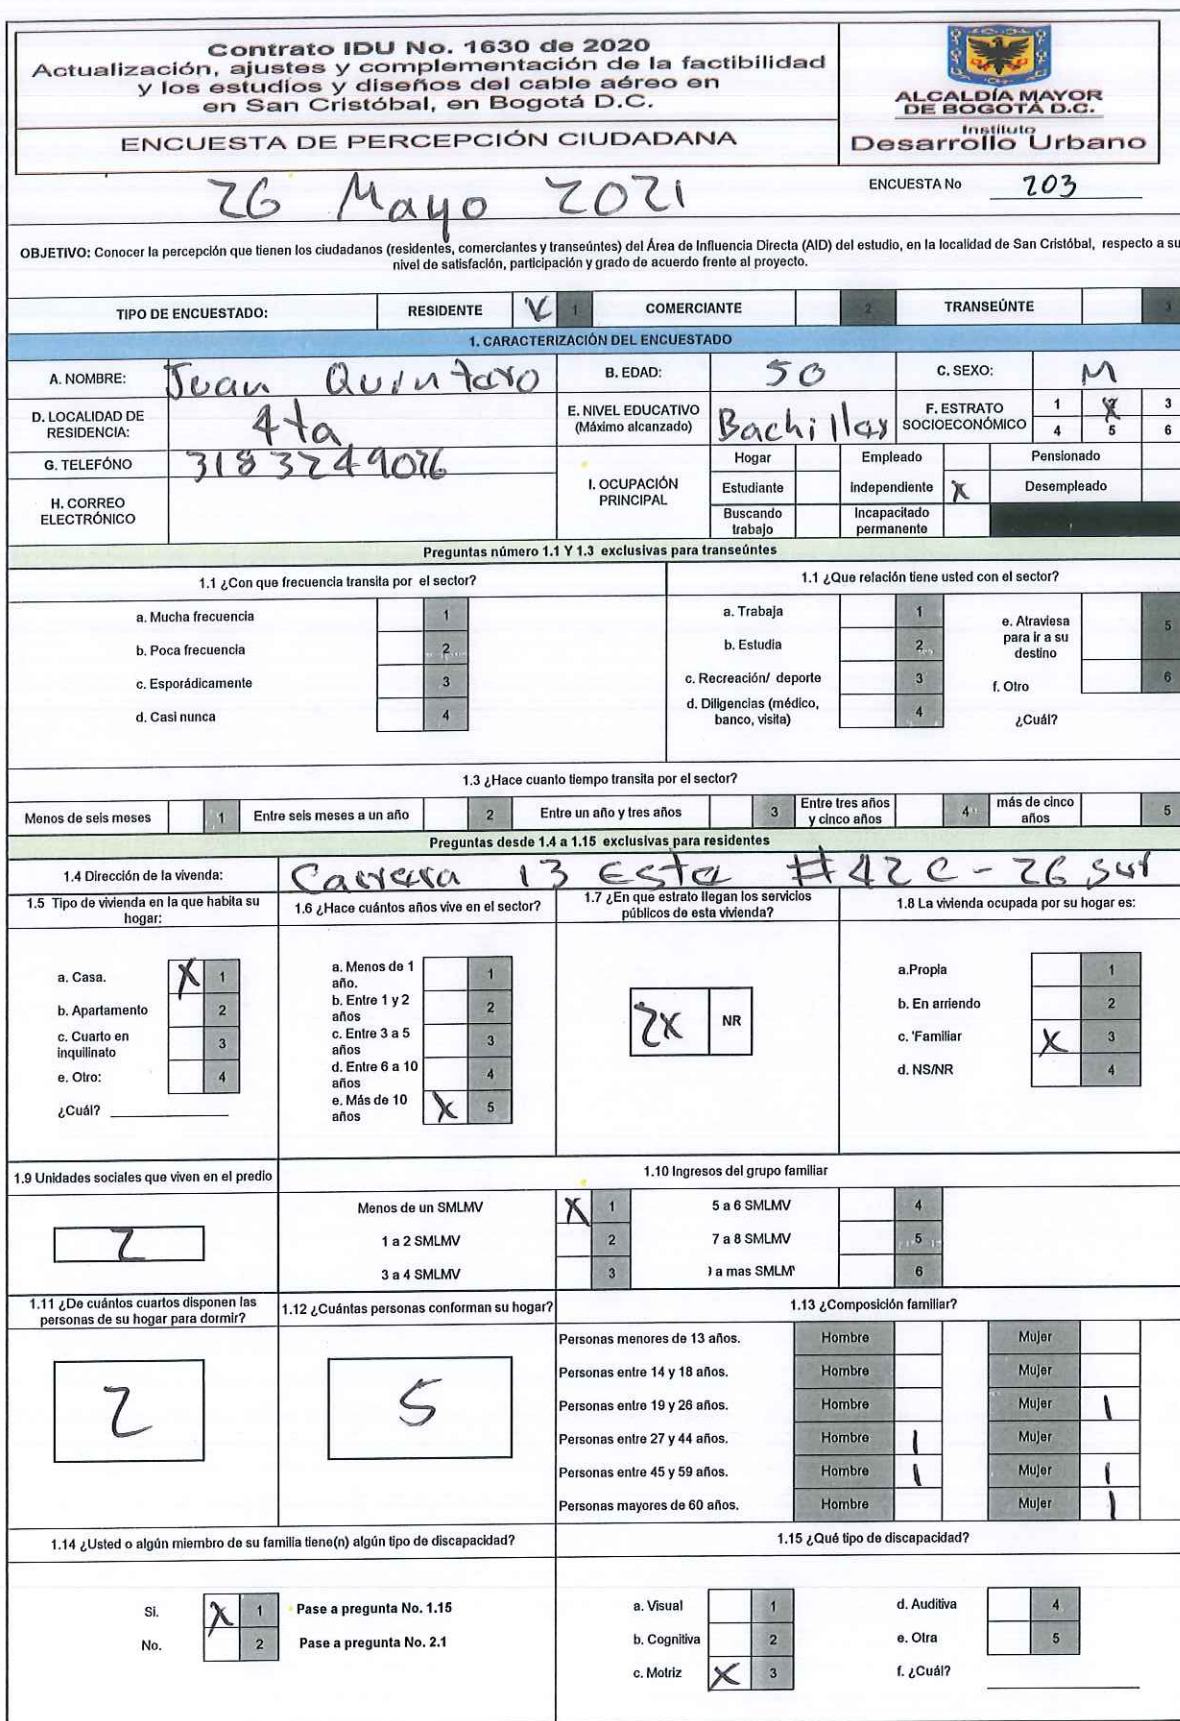 Contrato IDU No. 1630 de 2020
Actualización, ajustes y complementación de la factibilidad
y los estudios y diseños del cable aéreo en
en San Cristóbal, en Bogotá D.C.
ENCUESTA DE PERCEPCIÓN CIUDADANA
ALCALDÍA MAYOR
DE BOGOTÁ D.C.
Instituto
Desarrollo Urbano
26 Mayo 2021
ENCUESTA No 203
OBJETIVO: Conocer la percepción que tienen los ciudadanos (residentes, comerciantes y transeúntes) del Área de Influencia Directa (AID) del estudio, en la localidad de San Cristóbal, respecto a su
nivel de satisfacción, participación y grado de acuerdo frente al proyecto.
TIPO DE ENCUESTADO: RESIDENTE X 1 COMERCIANTE 2 TRANSEÚNTE 3
1. CARACTERIZACIÓN DEL ENCUESTADO
A. NOMBRE: Juan Quintero B. EDAD: 50 C. SEXO: M
D. LOCALIDAD DE RESIDENCIA: 4ta E. NIVEL EDUCATIVO (Máximo alcanzado) Bachiller F. ESTRATO SOCIOECONÓMICO 1 X 3
4 5 6
G. TELEFÓNO
H. CORREO ELECTRÓNICO
I. OCUPACIÓN PRINCIPAL
Hogar Empleado Pensionado
Estudiante independiente X Desempleado
Buscando trabajo Incapacitado permanente
Preguntas número 1.1 Y 1.3 exclusivas para transeúntes
1.1 ¿Con que frecuencia transita por el sector?
a. Mucha frecuencia 1
b. Poca frecuencia 2
c. Esporádicamente 3
d. Casi nunca 4
1.1 ¿Que relación tiene usted con el sector?
a. Trabaja 1
b. Estudia 2
c. Recreación/ deporte 3
d. Diligencias (médico, banco, visita) 4
e. Atraviesa para ir a su destino 5
f. Otro 6
¿Cuál?
1.3 ¿Hace cuanto tiempo transita por el sector?
Menos de seis meses 1 Entre seis meses a un año 2 Entre un año y tres años 3 Entre tres años y cinco años 4 más de cinco años 5
Preguntas desde 1.4 a 1.15 exclusivas para residentes
1.4 Dirección de la vivenda: Carrera 13 Este #42C-26 sur
1.5 Tipo de vivienda en la que habita su hogar:
a. Casa. X 1
b. Apartamento 2
c. Cuarto en inquilinato 3
e. Otro: 4
¿Cuál?
1.6 ¿Hace cuántos años vive en el sector?
a. Menos de 1 año. 1
b. Entre 1 y 2 años 2
c. Entre 3 a 5 años 3
d. Entre 6 a 10 años 4
e. Más de 10 años X 5
1.7 ¿En que estrato llegan los servicios públicos de esta vivienda?
2X NR
1.8 La vivienda ocupada por su hogar es:
a.Propia 1
b. En arriendo 2
c. 'Familiar X 3
d. NS/NR 4
1.9 Unidades sociales que viven en el predio
2
1.10 Ingresos del grupo familiar
Menos de un SMLMV X 1 5 a 6 SMLMV 4
1 a 2 SMLMV 2 7 a 8 SMLMV 5
3 a 4 SMLMV 3 a mas SMLM 6
1.11 ¿De cuántos cuartos disponen las personas de su hogar para dormir?
2
1.12 ¿Cuántas personas conforman su hogar?
5
1.13 ¿Composición familiar?
Personas menores de 13 años. Hombre Mujer
Personas entre 14 y 18 años. Hombre Mujer
Personas entre 19 y 26 años. Hombre Mujer 1
Personas entre 27 y 44 años. Hombre 1 Mujer
Personas entre 45 y 59 años. Hombre 1 Mujer 1
Personas mayores de 60 años. Hombre Mujer 1
1.14 ¿Usted o algún miembro de su familia tiene(n) algún tipo de discapacidad?
Si. X 1 Pase a pregunta No. 1.15
No. 2 Pase a pregunta No. 2.1
1.15 ¿Qué tipo de discapacidad?
a. Visual 1 d. Auditiva 4
b. Cognitiva 2 e. Otra 5
c. Motriz X 3 f. ¿Cuál?